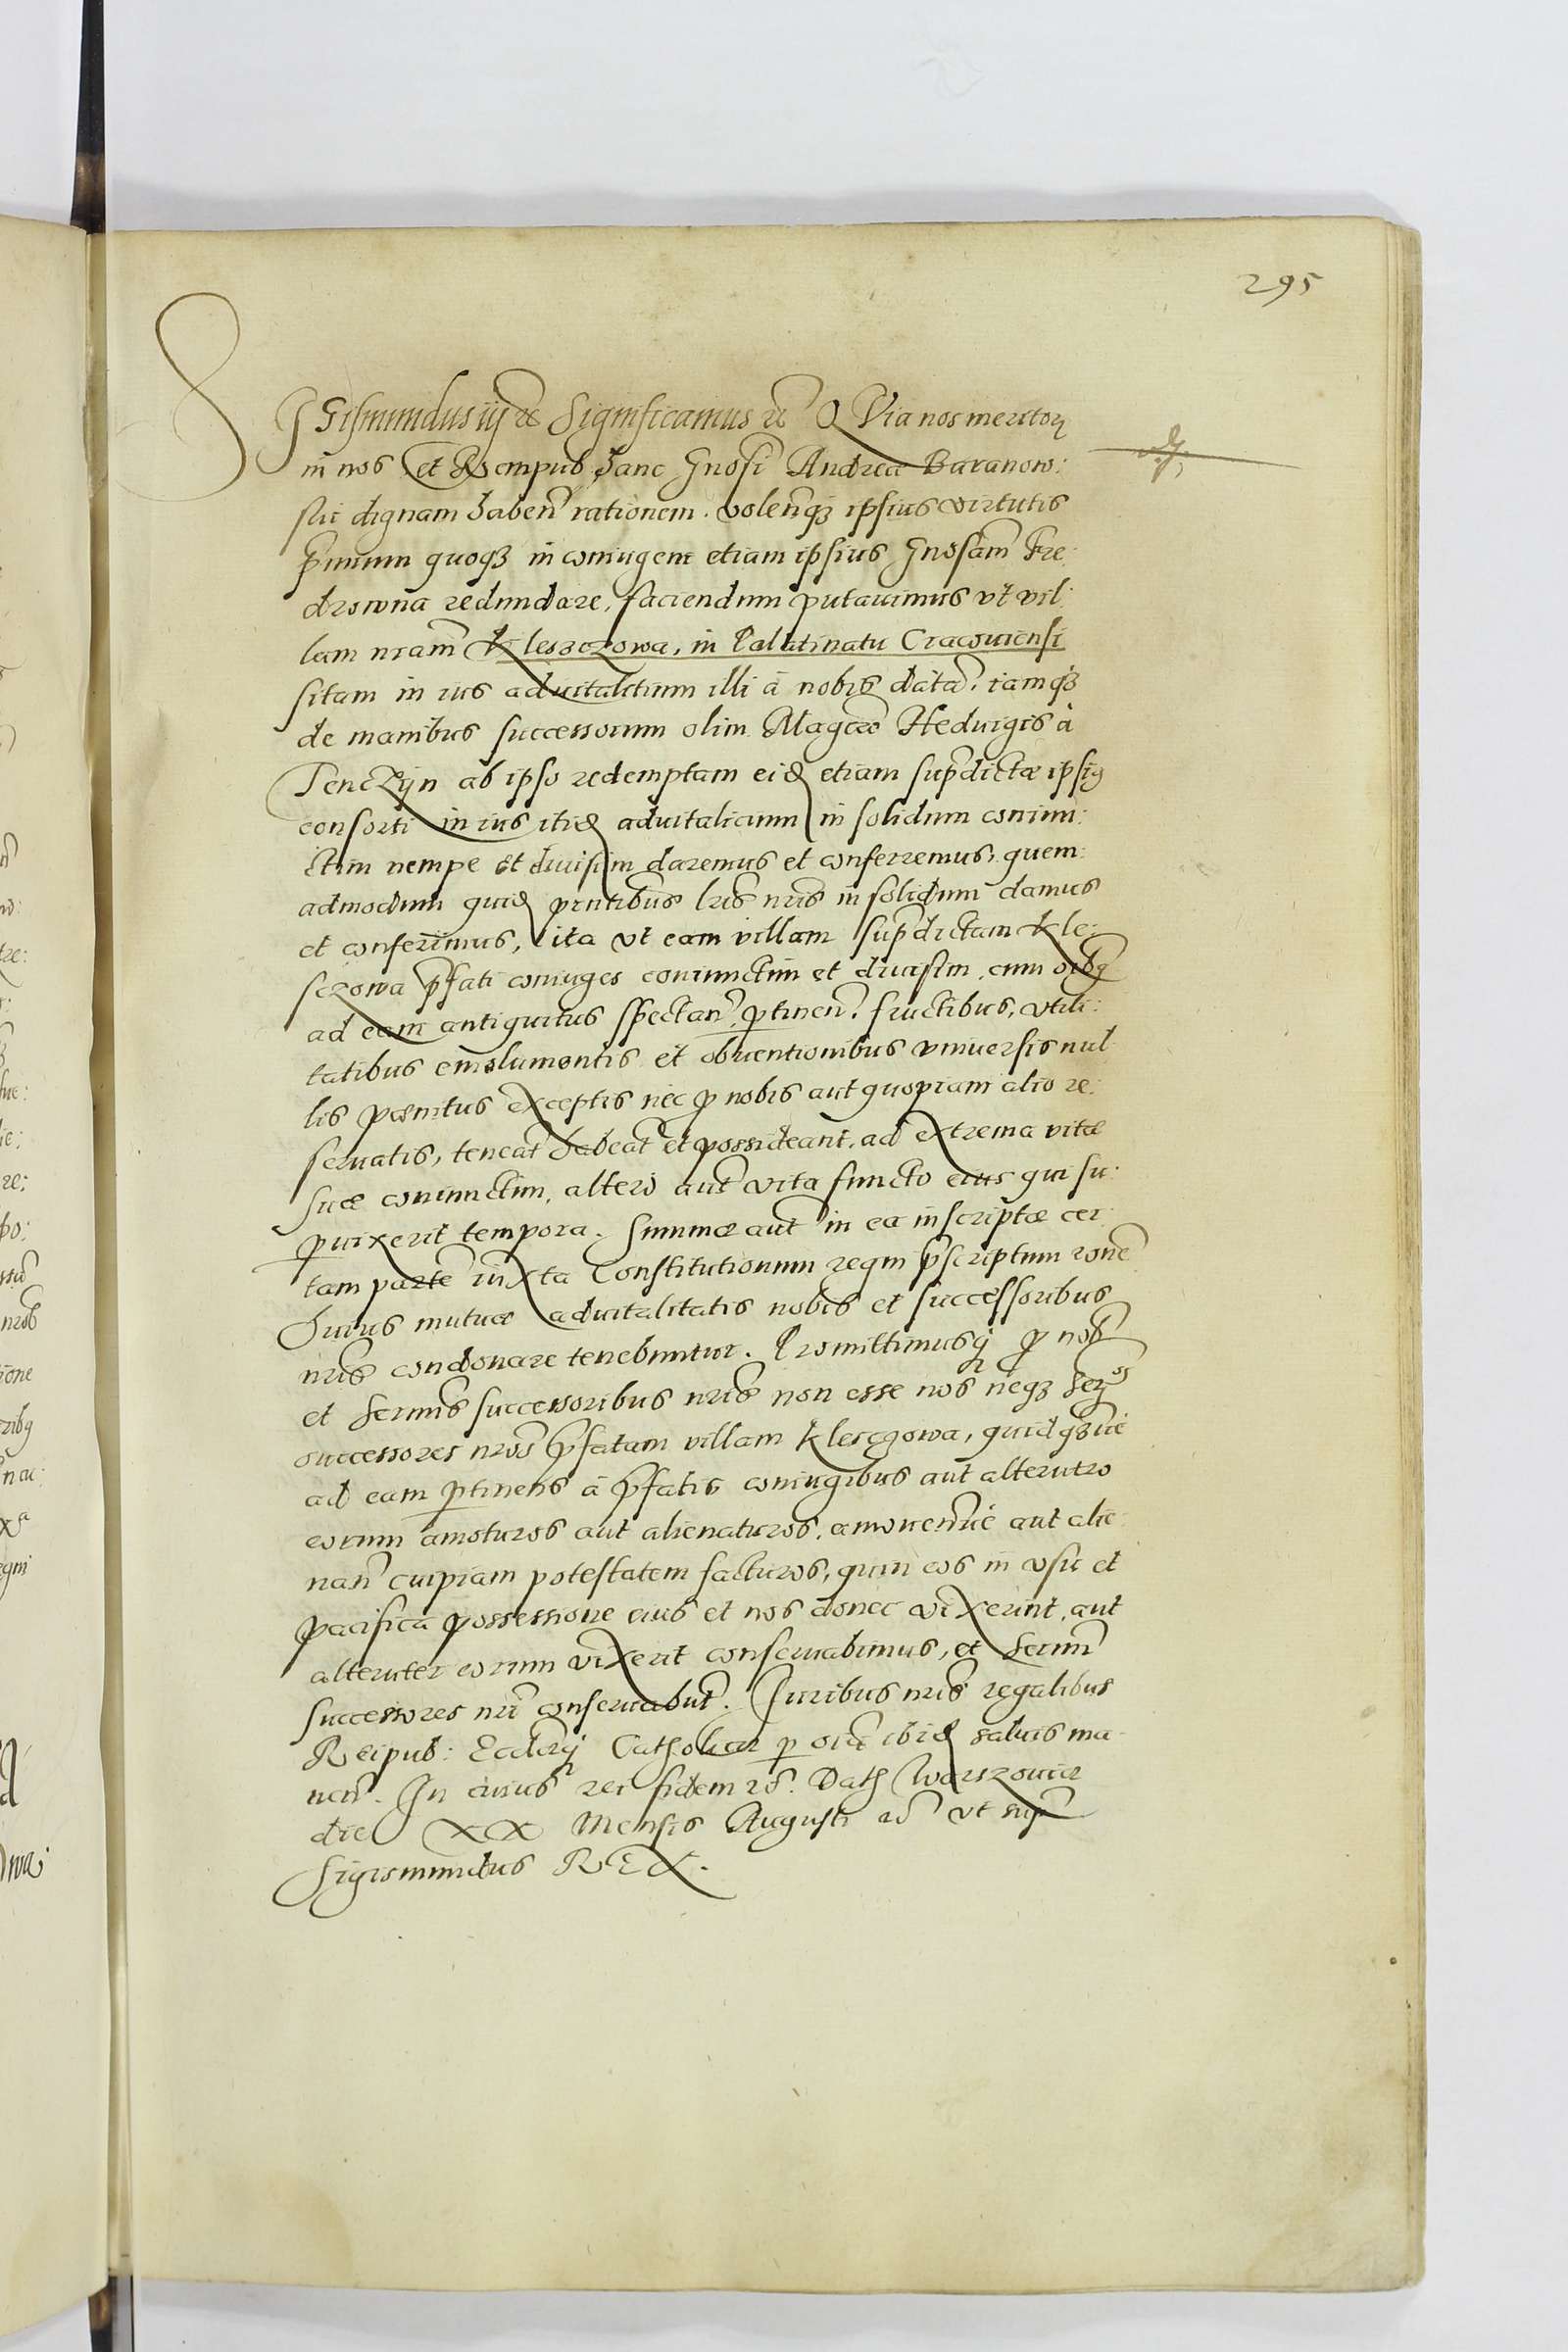 295
SIGismundus iij &c Significamus &c QVia nos meritorꝝ
in nos et Rempub: hanc Gnosi Andreæ Baranow:
ski dignam haben̄ rationem. volenqꝫ ipsius virtutis
p̄mium quoqꝫ in coniugem etiam ipsius Gnosam̄ Fre:
drowna redundare, faciendum putauimus vt vil:
lam nram̄ Kleszczowa, in Palatinatu Cracouiensi
sitam in ius aduitalitium illi à nobis data. iamqꝫ
de manibus successorum olim Magcæ Heduigis à
Tenczyn ab ipso redemptam eid. etiam sup̄dictæ ipsiꝰ
consorti in ius itid. aduitalicium in solidum coniun:
ctim nempe et diuisim daremus et conferremus, quem:
admodum quid. pn̄tibus lris̄ nris̄ in solidum damus
et conferimus, ita vt eam villam sup̄dictam Kle:
sczowa p̄fati coniuges coniunctim et diuisim, cum oībꝰ
ad eam antiquitus spectan̄. ꝑtinen̄. fructibus, vtili:
tatibus emolumentis et obuentionibus vniuersis nul
lis pœnitus exceptis nec ꝓ nobis aut quopiam alio re:
seruatis, teneat̄ habeat̄ et possideant, ad extrema vitæ
suæ coniunctim, altero aut̄ vita functo eius qui su:
ꝑuixerit tempora. Summæ aut̄ in ea inscriptæ cer:
tam parte iuxta Constitutionum regni p̄scriptum rone
huius mutuæ aduitalitatis nobis et successoribus
nris̄ condonare tenebuntur. Promittimusqꝫ ꝓ nob̄
et Sermis̄ successoribus nris̄ non esse nos neqꝫ Ser̄os
successores nros̄ p̄fatam villam Klesczowa, quidqꝫue
ad eam ꝑtinens à p̄fatis coniugibus aut alterutro
eorum amoturos aut alienaturos, amouen̄ue aut alie
nan̄ cuipiam potestatem facturos, quin eos in vsu et
pacifica possessione eius et nos donec vixerint, aut
alteruter eorum vixerit conseruabimus, et Sermi
successores nri̅ conseruabut̄. Iuribus nris̄ regalibus
Reipub: Ecclæqꝫ Catholicæ ꝑ oīa ibid. saluis ma
nen̄. In cuius rei fidem &c. Dat Warszouiæ
die XX Mensis Augusti ao vt sup̄
Sigismundus REX.